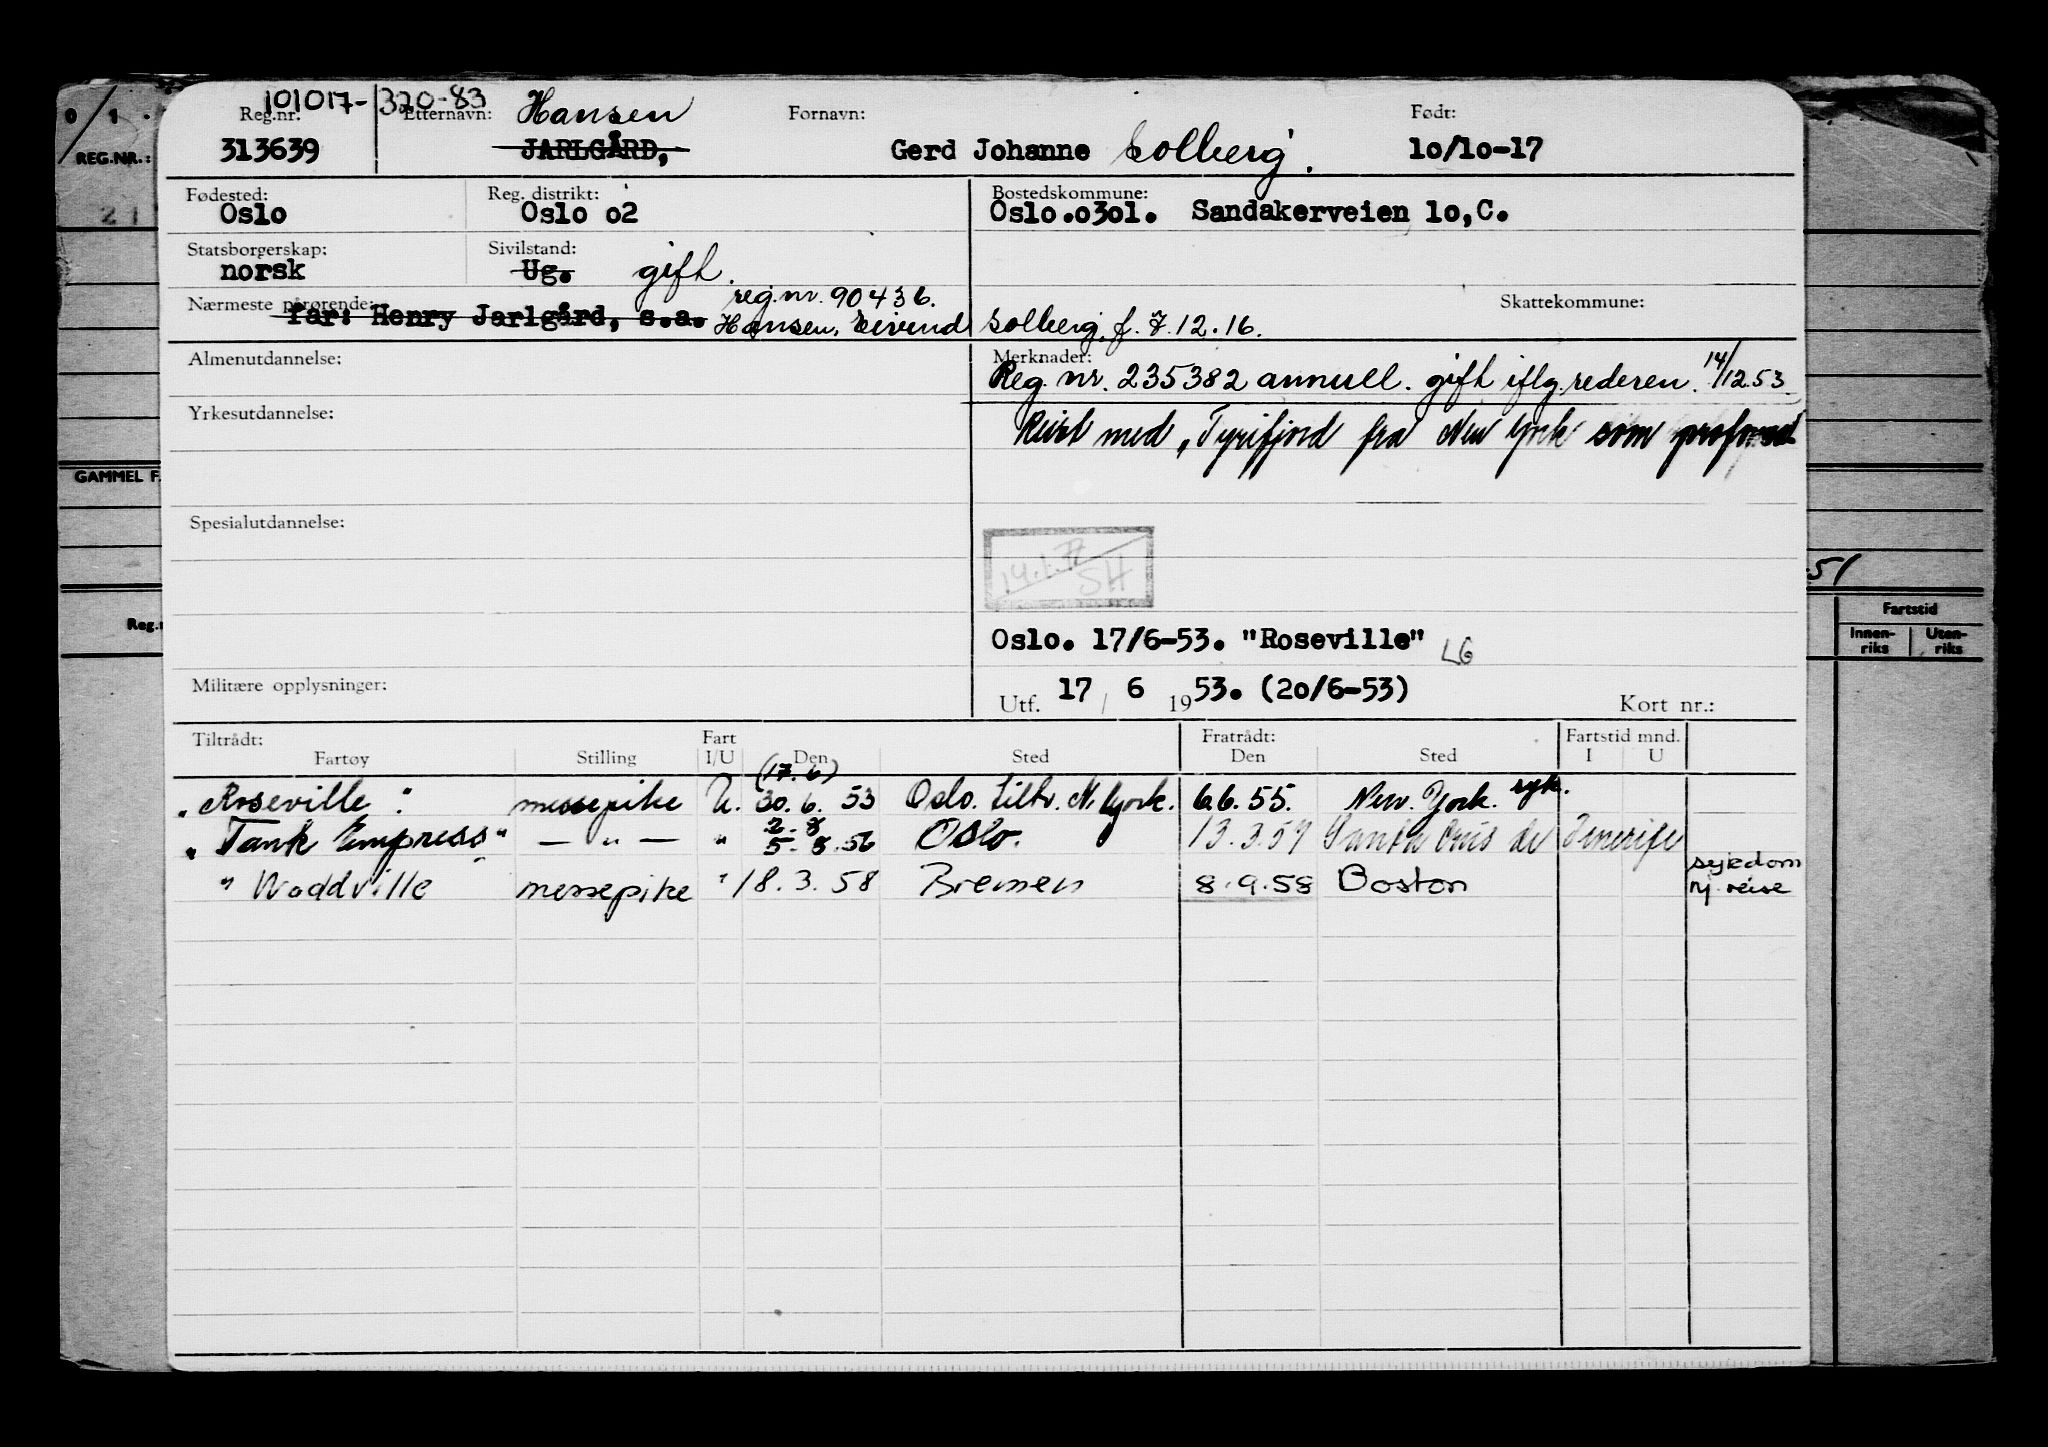 101017-37083
Reg.nr. Etternavn: Hansen Fornavn: Født:
313639 JARLGÅRD, Gerd Johanne Solberg. 10/10-17
Fødested: Reg. distrikt: Bostedskommune:
Oslo Oslo o2 Oslo.o3ol. Sandakerveien lo,C.
Statsborgerskap: Sivilstand:
norsk Ug. gift.
reg.nr. 90436.
Nærmeste pårørende: Skattekommune:
far: Henry Jarlgård, s.a. Hansen, Eivind Solberg, f. 7.12.16.
Almenutdannelse: Merknader:
Reg. nr. 235382 annull. gift iflg. rederen. 14/12.53
Yrkesutdannelse:
Reist med "Tyrifjord fra New York som
Spesialutdannelse:
14.1.77
SH
Oslo. 17/6-53. "Roseville" LG
Militære opplysninger:
Utf. 17 / 6 1953. (20/6-53) Kort nr.:
Tiltrådt: Fart Fratrådt: Fartstid mnd.
Fartøy Stilling I/U Den Sted Den Sted I U
(17.6)
"Roseville" messepike U. 30.6.53 Oslo. tiltr. N. York. 6.6.55. New. York. syk.
2-8
"Tank Empress" — " — " 5.8.56 Oslo. 13.3.57 Santa Cruis de Tenerife
" Woddville messepike " 18.3.58 Bremen 8.9.58 Boston sykdom
hj. reise
0/1.
REG.NR.:
21
GAMMEL F.
Reg.
51
Fartstid
Innen-riks Uten-riks